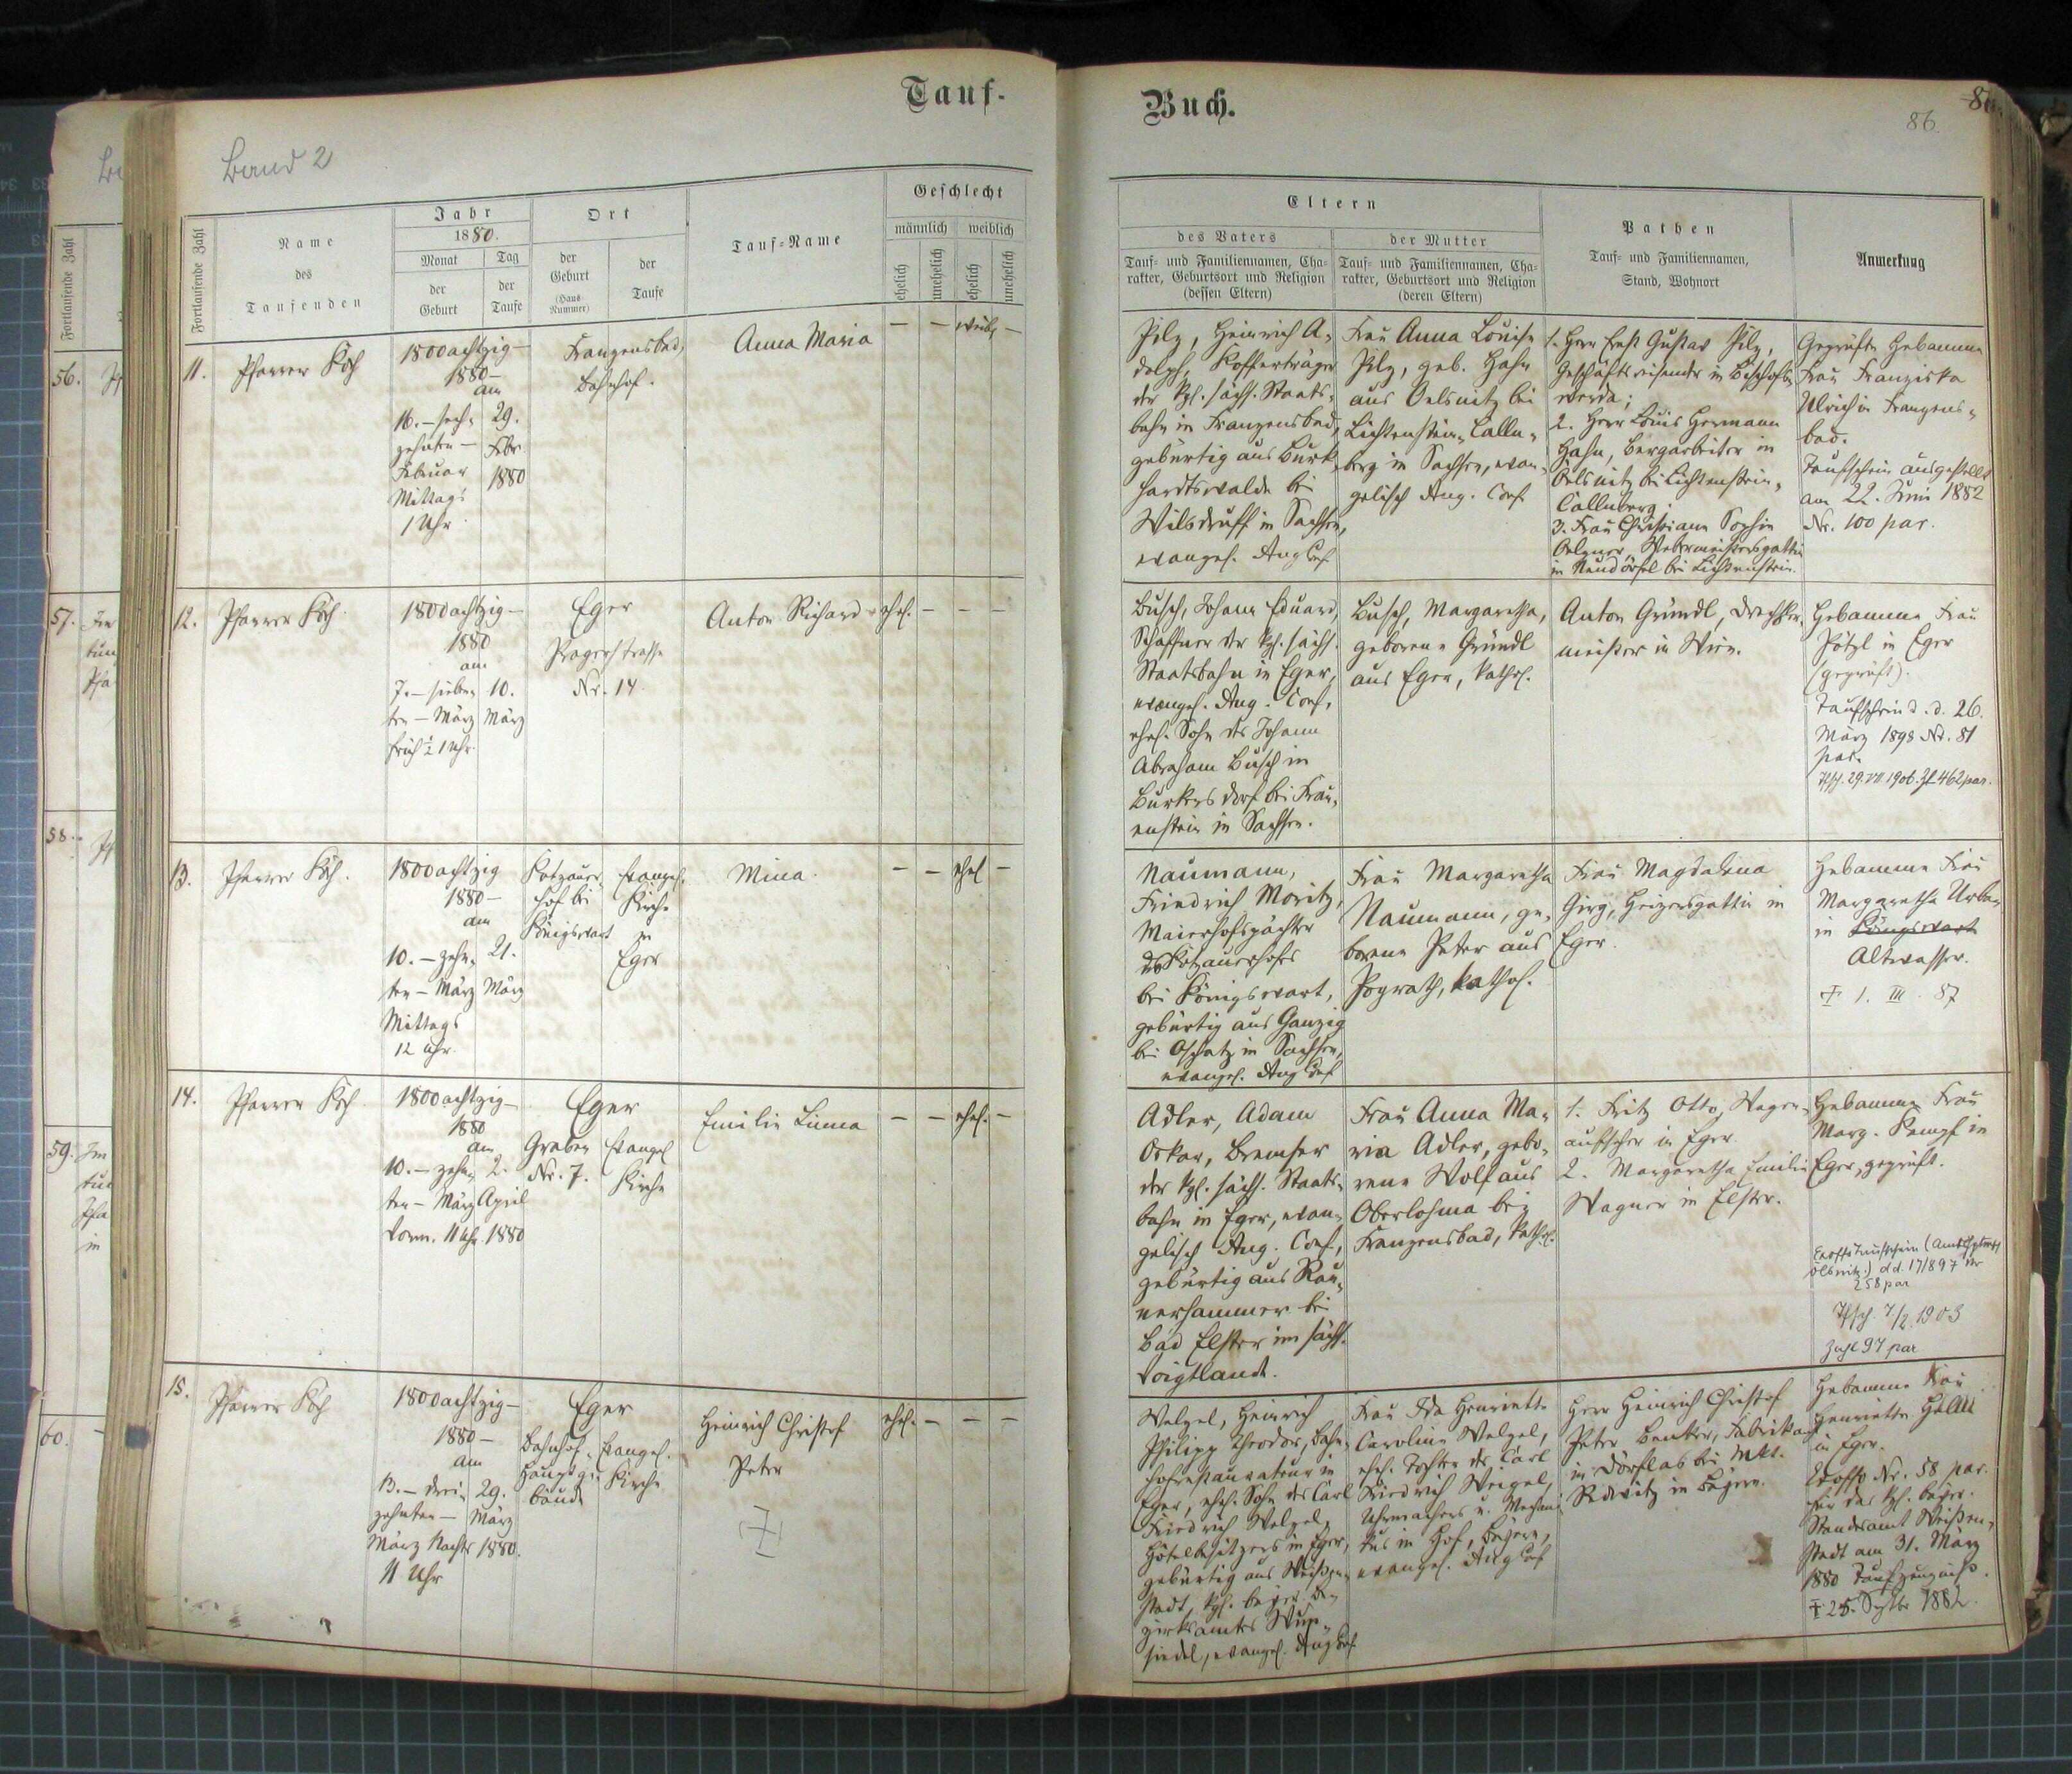 Tauf-
Buch.
Band 2
86.
Fortlaufende Zahl
Name
des
Taufenden
Jahr
1880.
Monat
der
Geburt
Tag
der
Taufe
Ort
der
Geburt
(Haus-
Nummer)
der
Taufe
Tauf-Name
Geschlecht
männlich
weiblich
ehelich
unehelich
ehelich
unehelich
Eltern
des Vaters
Tauf- und Familiennamen, Cha-
rakter, Geburtsort und Religion
(dessen Eltern)
der Mutter
Tauf- und Familiennamen, Cha-
rakter, Geburtsort und Religion
(deren Eltern)
Pathen
Tauf- und Familiennamen,
Stand, Wohnort
Anmerkung
11.
Pfarrer Koch
1800achtzig-
1880-
am
16.-sech-
zehnten-
Februar
Mittags
1 Uhr
29.
Febr.
1880
Franzensbad,
Bahnhof.
Anna Maria
— — weibl. —
Pilz, Heinrich A-
dolph, Kofferträger
der kgl. sächs. Staats-
bahn in Franzensbad,
gebürtig aus Burk-
hardtswalde bei
Wilsdruff in Sachsen,
evangel. Aug Conf
Frau Anna Louise
Pilz, geb. Hahn
aus Oelsnitz bei
Lichtenstein-Calln-
berg in Sachsen, evan-
gelisch Aug. Conf.
1. Herr Ernst Gustav Pilz,
Geschäftsreisender in Bischofs-
werda;
2. Herr Louis Hermann
Hahn, Bergarbeiter in
Oelsnitz bei Lichtenstein-
Callnberg;
3. Frau Christiane Sophie
Webermeistersgattin
in Neudörfel bei Lichtenstein.
Geprüfte Hebamme
Frau Franziska
Ulrich in Franzens-
bad.
Taufschein ausgestellt
am 22. Juni 1882
Nr. 100 par.
12.
Pfarrer Koch.
1800achtzig-
1880
am
7.-sieben-
ten-März
früh ½ 1 Uhr.
10.
März
Eger
Pragerstrasse
Nr. 14.
Anton Richard
ehel. — — —
Busch, Johann Eduard,
Schaffner der kgl. sächs.
Staatsbahn in Eger,
evangel. Aug. Conf.,
ehel. Sohn des Johann
Abraham Busch in
Burkersdorf bei Frau-
enstein in Sachsen.
Busch, Margaretha,
geborene Gründl
aus Eger, kathol.
Anton Gründl, Drechsler-
meister in Wien.
Hebamme Frau
Pötzl in Eger
(geprüft).
Taufschein d. d. 26.
März 1898 Nr. 81
par.
Tfsch. 29.VII.1906. Zl. 462 par.
13.
Pfarrer Koch.
1800achtzig
1880-
am
10.-zehn-
ten-März
Mittags
12 Uhr.
21.
März
Kotzauer-
hof bei
Königswart
Evangel.
Kirche
in
Eger
Mina.
— — ehel —
Naumann,
Friedrich Moritz,
Maierhofspächter
des Kotzauerhofes
bei Königswart,
gebürtig aus Ganzig
bei Oschatz in Sachsen,
evangel. Aug Conf
Frau Margaretha
Naumann, ge-
borene Peter aus
Pograth, kathol.
Frau Magdalena
Girg, Heizersgattin in
Eger.
Hebamme Frau
Margaretha Urban
in Königswart
Altwasser.
† 1. III. 87
14.
Pfarrer Koch.
1800achtzig-
1880
am
10.-zehn-
ten-März
Vorm. 11 Uhr.
2.
April
1880
Eger
Graben
Nr. 7.
Evangel
Kirche
Emilie Linna
— — ehel. —
Adler, Adam
Oskar, Bremser
der kgl. sächs. Staats-
bahn in Eger, evan-
gelisch Aug. Conf.,
gebürtig aus Rau-
nerhammer bei
Bad Elster im sächs.
Voigtlande.
Frau Anna Ma-
ria Adler, gebo-
rene Wolf aus
Oberlohma bei
Franzensbad, kathol.
1. Fritz Otto, Wagen-
aufseher in Eger.
2. Margaretha Emilie
Wagner in Elster.
Hebamme Frau
Marg. Kempf in
Eger, geprüft.
Tfsch. 7/2. 1903
Zahl 97 par
15.
Pfarrer Koch
1800achtzig-
1880-
am
13.-drei-
zehnten-
März Nachts
11 Uhr
29.
März
1880.
Eger
Bahnhof-
Hauptge-
bäude
Evangel.
Kirche
Heinrich Christof
Peter
(†)
ehel. — — —
Welzel, Heinrich
Philipp Theodor, Bahn-
hofrestaurateur in
Eger, ehel. Sohn des Carl
Friedrich Welzel,
Hôtelbesitzers in Eger,
gebürtig aus Weißen-
stadt, kgl. bayer. Be-
zirksamtes Wun-
siedel, evangel. Aug Conf.
Frau Ida Henriette
Caroline Welzel,
ehel. Tochter des Carl
Friedrich Weigel,
Uhrmachers u. Mechani-
kus in Hof, Bayern,
evangel. Aug Conf
Herr Heinrich Christof
Peter Benker, Fabrikant
in Dörflas bei Mkt.
Redwitz in Bayern.
Hebamme Frau
Henriette
in Eger.
Exoffo Nr. 58 par.
für das kgl. bayer.
Standesamt Weißen-
stadt am 31. März
1880 Taufzeugniß.
† 25. Septbr 1882.
56.
57.
58.
59.
60.